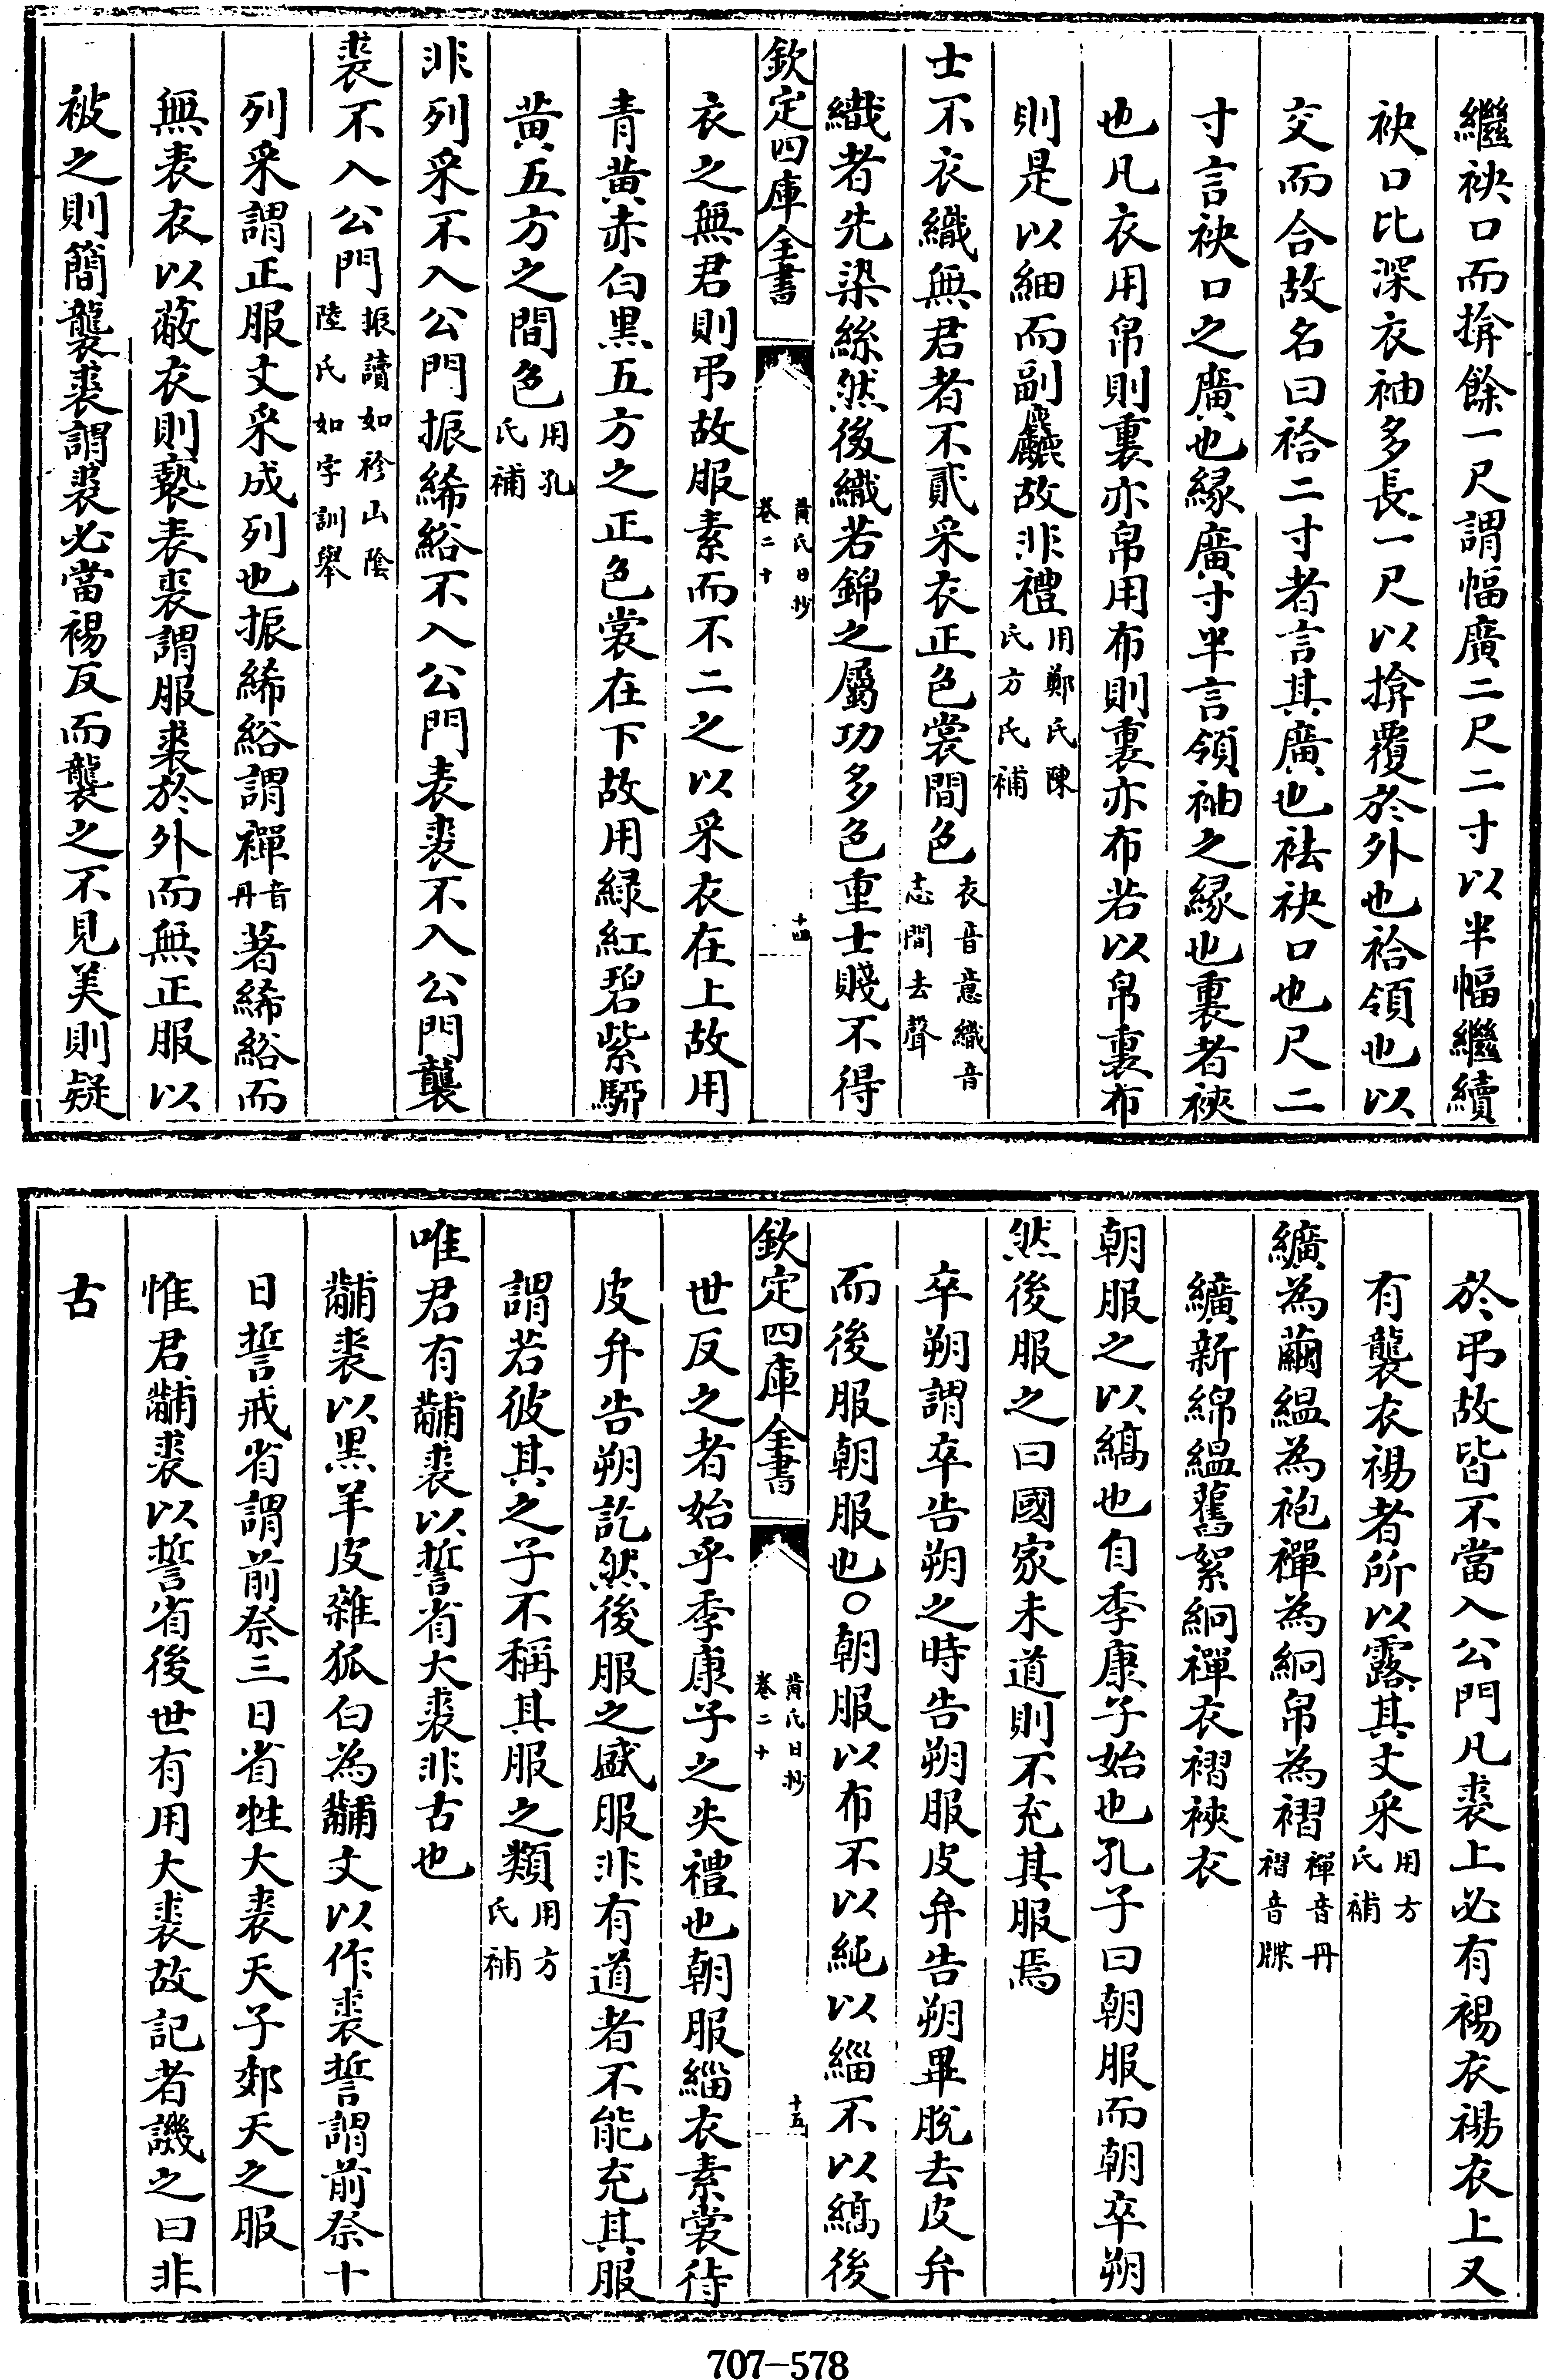 繼袂口而揜餘一尺謂幅廣二尺二寸以半幅繼續
袂口比深衣袖多長一尺以揜覆於外也袷領也以
交而合故名曰袷二寸者言其廣也袪袂口也尺二
寸言袂口之廣也緣廣寸半言領袖之緣也裏者裌
也凡衣用帛則裏亦帛用布則裏亦布若以帛裏布
則是以細而副麤故非禮用鄭氏陳氏方氏補
士不衣織無君者不貳采衣正色裳間色衣音意織音志間去聲
織者先染絲然後織若錦之屬功多色重士賤不得
欽定四庫全書 黃氏日抄卷二十 十四
衣之無君則弔故服素而不二之以采衣在上故用
青黃赤白黑五方之正色裳在下故用綠紅碧紫騮
黃五方之間色用孔氏補
非列采不入公門振絺綌不入公門表裘不入公門襲
裘不入公門振讀如袗山陰陸氏如字訓舉
列采謂正服文采成列也振絺綌謂襌音丹著絺綌而
無表衣以蔽衣則褻表裘謂服裘於外而無正服以
被之則簡襲裘謂裘必當裼反而襲之不見美則疑
於弔故皆不當入公門凡裘上必有裼衣裼衣上又
有襲衣裼者所以露其文采用方氏補
纊為繭縕為袍襌為絅帛為褶襌音丹褶音牒
纊新綿縕舊絮絅襌衣褶裌衣
朝服之以縞也自季康子始也孔子曰朝服而朝卒朔
然後服之曰國家未道則不充其服焉
卒朔謂卒告朔之時告朔服皮弁告朔畢脫去皮弁
而後服朝服也○朝服以布不以純以緇不以縞後
欽定四庫全書 黃氏日抄卷二十 十五
世反之者始乎季康子之失禮也朝服緇衣素裳待
皮弁告朔訖然後服之盛服非有道者不能充其服
謂若彼其之子不稱其服之類用方氏補
唯君有黼裘以誓省大裘非古也
黼裘以黑羊皮雜狐白為黼文以作裘誓謂前祭十
日誓戒省謂前祭三日省牲大裘天子郊天之服
惟君黼裘以誓省後世有用大裘故記者譏之曰非
古
707-578